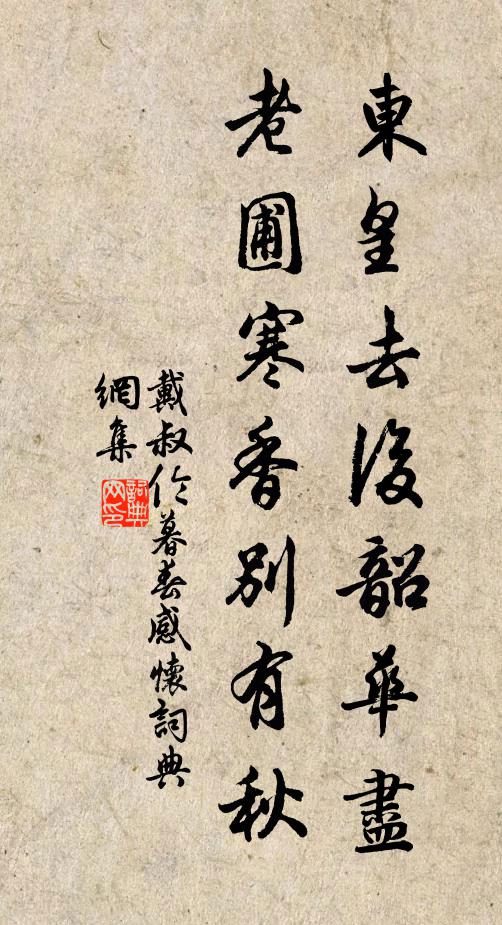 東皇去後韶華盡
老圃寒香別有秋
戴叔伦暮春感懷詞典
網集
詞典网印